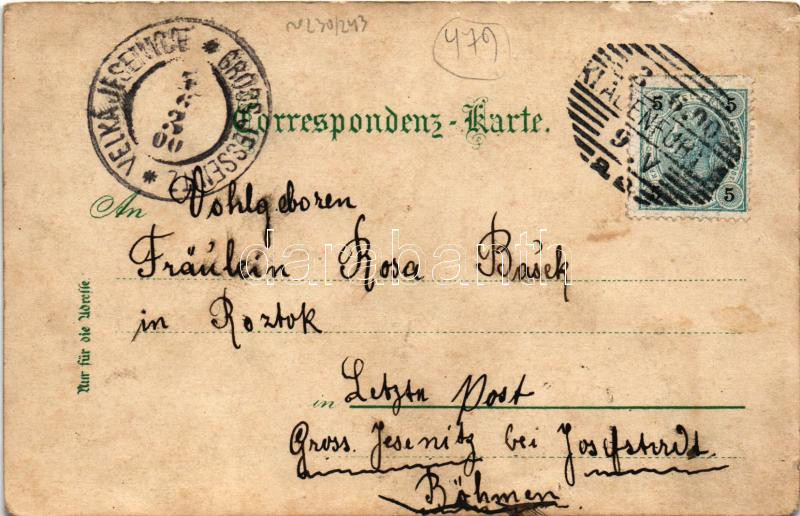 N230/243
479
VELKÁ JESENICE * GROSS JESSENITZ *
00
KLAGENFURT
9.V
5 5
5 5
Correspondenz-Karte.
An Wohlgeboren
Fräulein Rosa Bašek
in Roztok
in Letzte Post
Gross. Jesenitz bei Josefstadt.
Böhmen.
Nur für die Adresse
darabanth